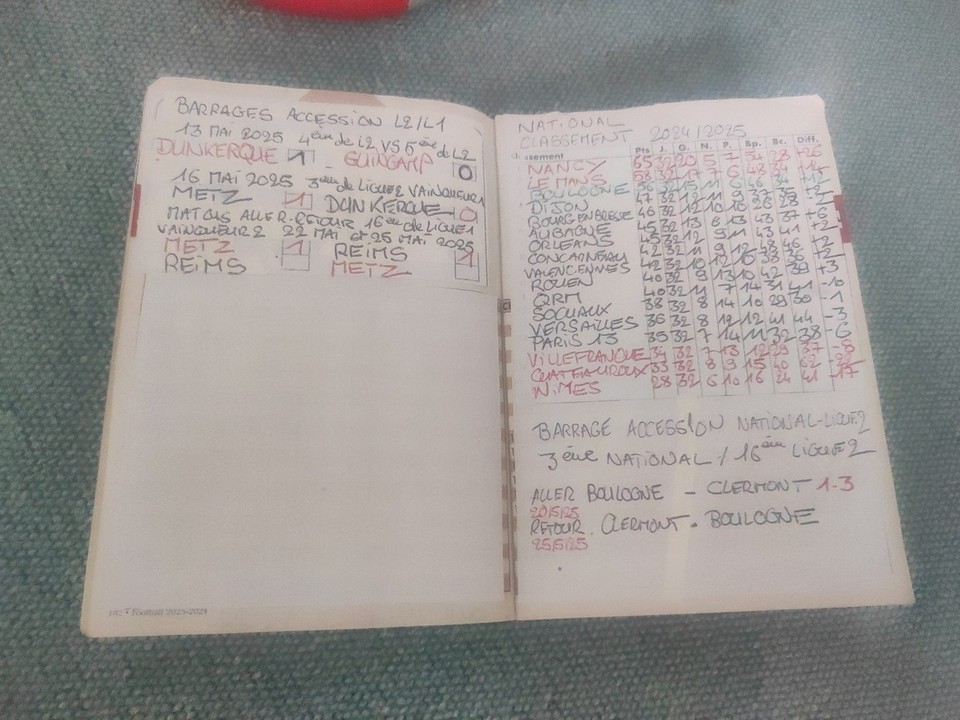 BARRAGES ACCESSION L2/L1
13 MAI 2025 4ème de L2 VS 5ème de L2
DUNKERQUE 1 - GUINGAMP 0
16 MAI 2025 3ème de LIGUE 2 VAINQUEUR 1
METZ 1 DUNKERQUE 0
MATCHS ALLER-RETOUR 16ème de LIGUE 1
VAINQUEUR 2 22 MAI et 26 MAI 2025
METZ 1 REIMS 1
REIMS METZ
182 • Football 2023-2024
NATIONAL
CLASSEMENT 2024/2025
ssement Pts J. G. N. P. Bp. Bc. Diff.
NANCY 65 32 20 5 7 54 28 +26
LE MANS 58 32 17 7
BOULOGNE 56 32 15 11 6
DIJON 47 32 12 11 9
BOURG EN BRESSE 46 32 12 10 10 26 28 -2
AUBAGNE 45 32 13 6 13 43 37 +6
ORLEANS 45 32 12 9 11 43 41 +2
CONCARNEAU 42 32 11 9 12 48 46 +2
VALENCIENNES 42 32 10 12 10 38 36 +2
ROUEN 40 32 9 13 10 42 39 +3
QRM 40 32 11 7 14 31 41 -10
SOCHAUX 38 32 8 14 10 29 30 -1
VERSAILLES 36 32 8 12 12 41 44 -3
PARIS 13 35 32 7 14 11 32 38 -6
VILLEFRANCHE 34 32 7 13 12 29 37 -8
CHATEAUROUX 33 32 8 9 15 40 62 -22
NIMES 28 32 6 10 16 24 41 -17
BARRAGE ACCESSION NATIONAL-LIGUE 2
3ème NATIONAL / 16ème LIGUE 2
ALLER BOULOGNE - CLERMONT 1-3
20/5/25
RETOUR. CLERMONT - BOULOGNE
25/5/25